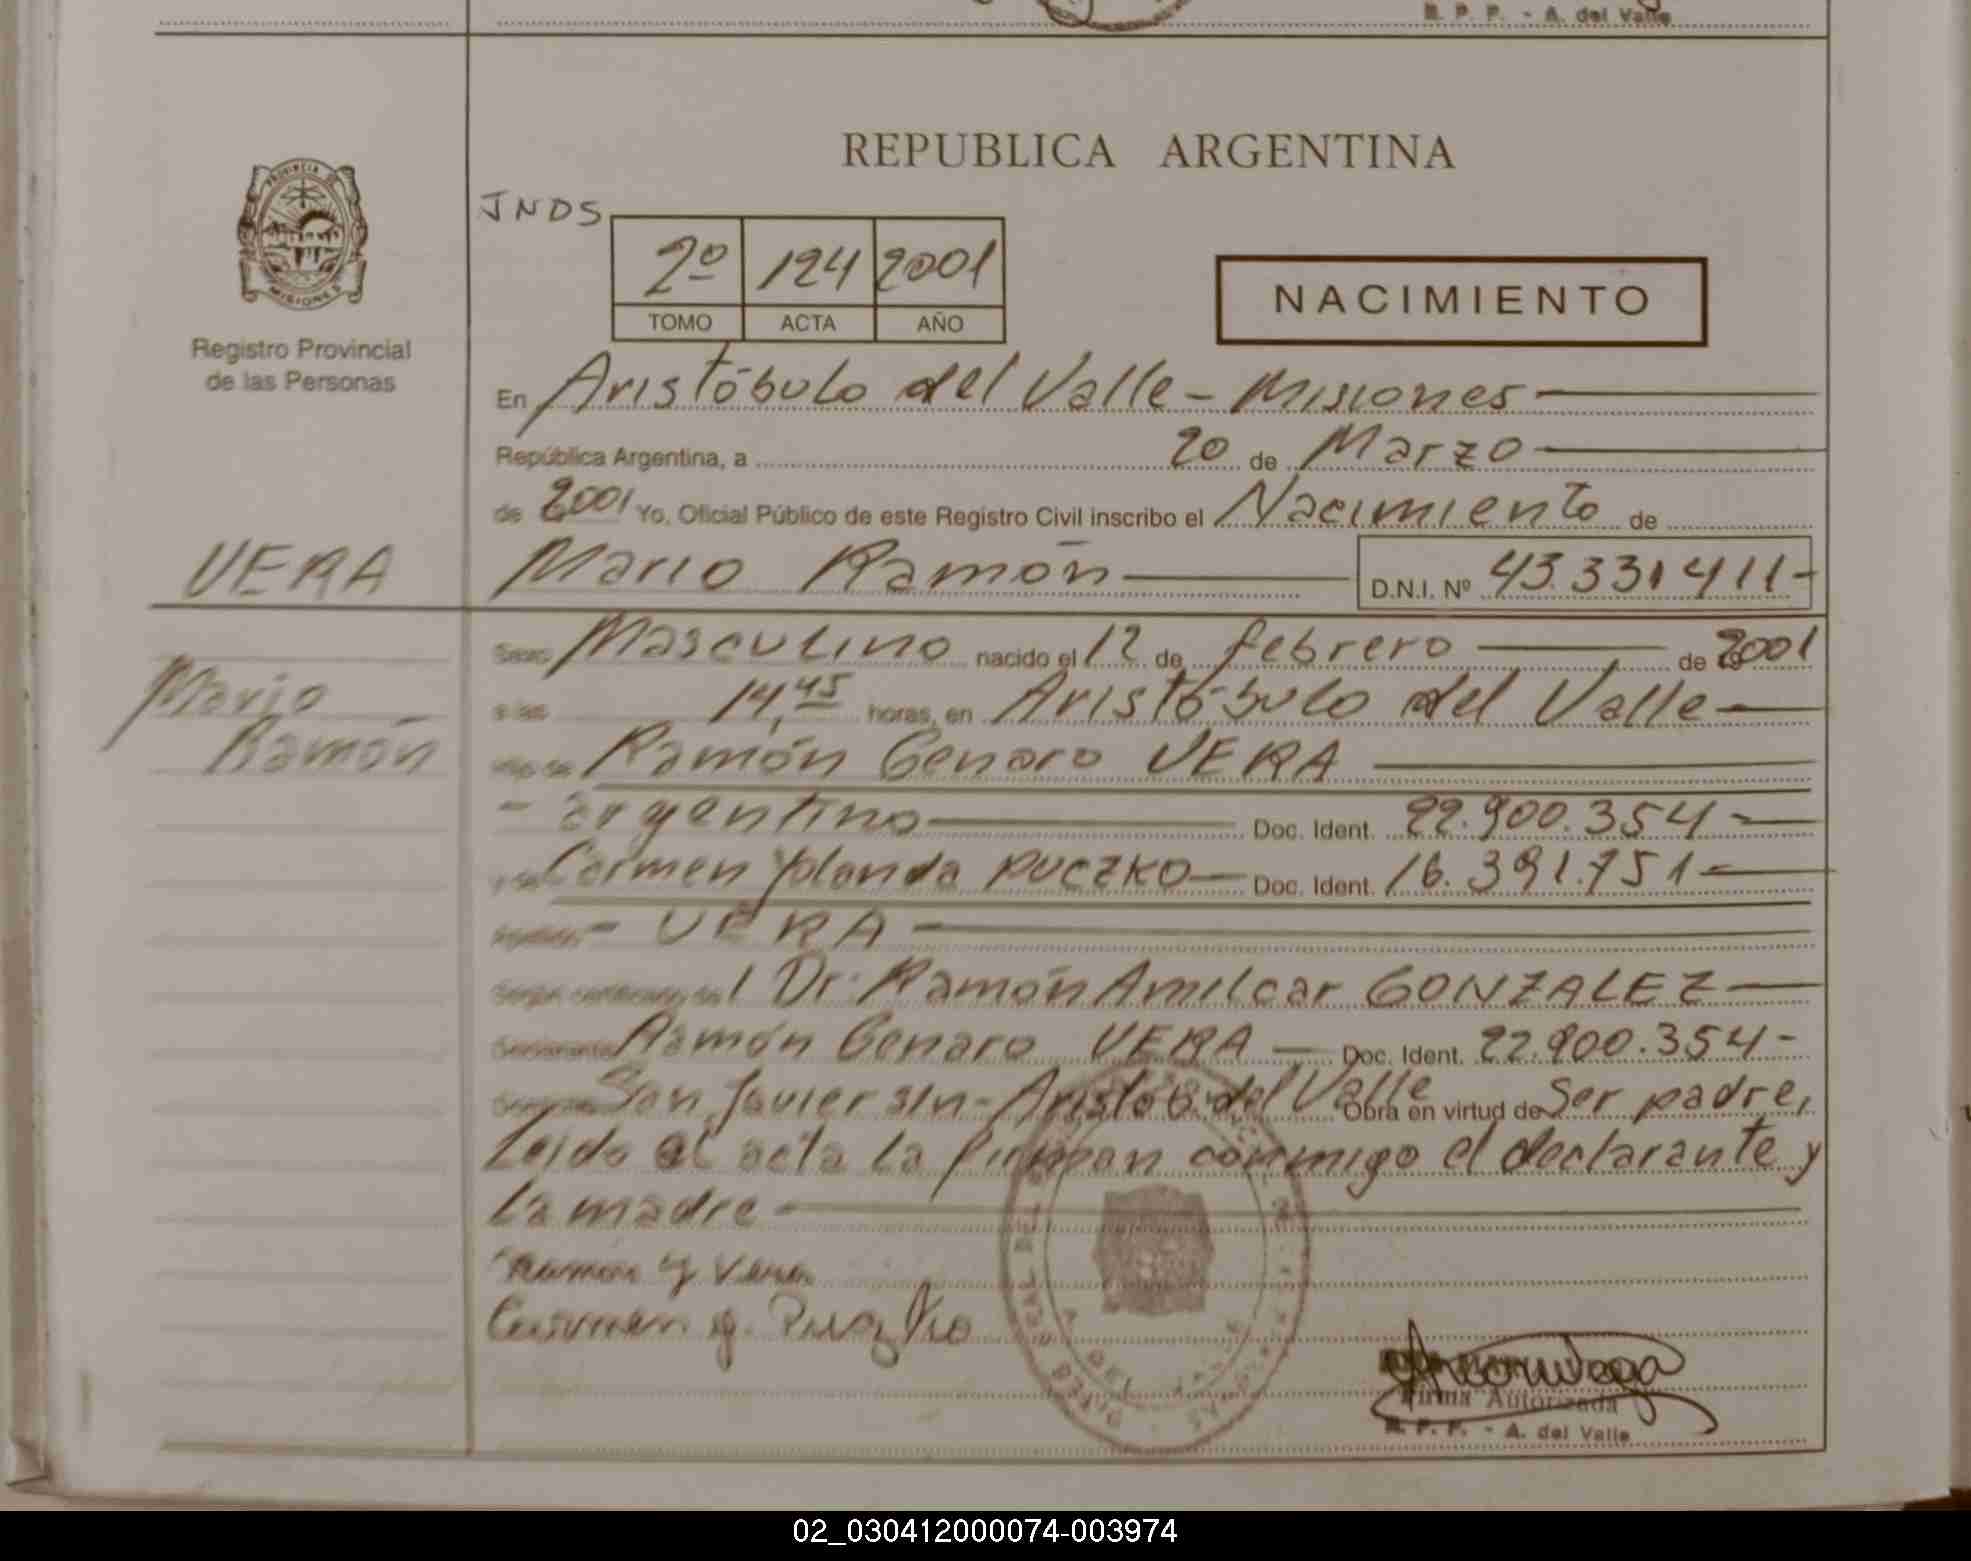 R. P. P. - A. del Valle
REPUBLICA ARGENTINA
PROVINCIA DE
MISIONES
Registro Provincial
de las Personas
JNDS
2º 124 2001
TOMO ACTA AÑO
NACIMIENTO
En Aristóbulo del Valle - Misiones
República Argentina, a 20 de Marzo
de 2001 Yo, Oficial Público de este Registro Civil inscribo el Nacimiento de
VERA
Mario Ramón D.N.I. Nº 43.331.411-
Mario
Ramón
Sexo Masculino nacido el 12 de febrero de 2001
a las 14,45 horas, en Aristóbulo del Valle
Hijo de Ramón Genaro VERA
- argentino Doc. Ident. 22.900.354-
y de Carmen Yolanda PUCZKO Doc. Ident. 16.391.751-
- VERA
Según certificado de l Dr. Ramón Amilcar GONZALEZ
Ramón Genaro VERA Doc. Ident. 22.900.354-
San Javier s/n - Aristób. del Valle Obra en virtud de Ser padre,
Leido el acta la firman conmigo el declarante y
la madre
Ramon g Vera
Carmen y. Puczko
Firma Autorizada
R. P. P. - A. del Valle
02_030412000074-003974